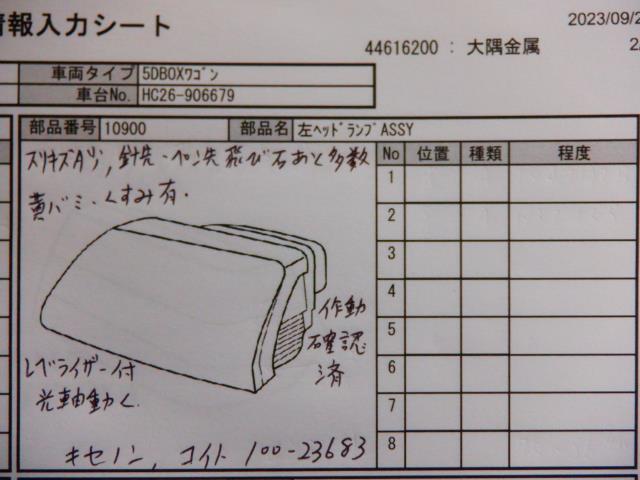 情報入力シート
2023/09/2
44616200 : 大隅金属
2/
車両タイプ 5DBOXワゴン
車台No. HC26-906679
部品番号 10900 部品名 左ヘッドランプASSY
スリキズAリ, 針先・ペン先飛び石あと多数
黄バミ・くすみ有.
No 位置 種類 程度
1
2
3
4
5
6
7
8
作動
確認
済
レベライザー付
光軸動く.
キセノン, コイト 100-23683